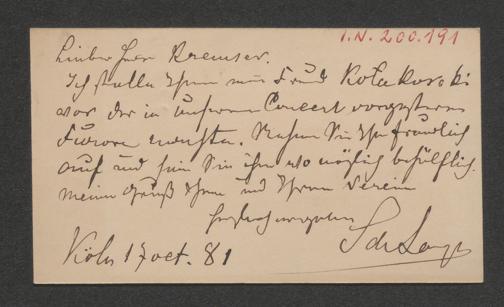 I.N. 200.191
Lieber Herr Kremser.
Ich stelle Ihnen mein Freund Kotakowski
vor der in unserem Concert vorgestern
Furore machte. Nehmen Sie ihn freundlich
auf und sein Sie ihm wo möglich behülflich.
Meinen Gruß Ihnen und Ihrem Verein
S de Lange
Köln 17 oct. 81